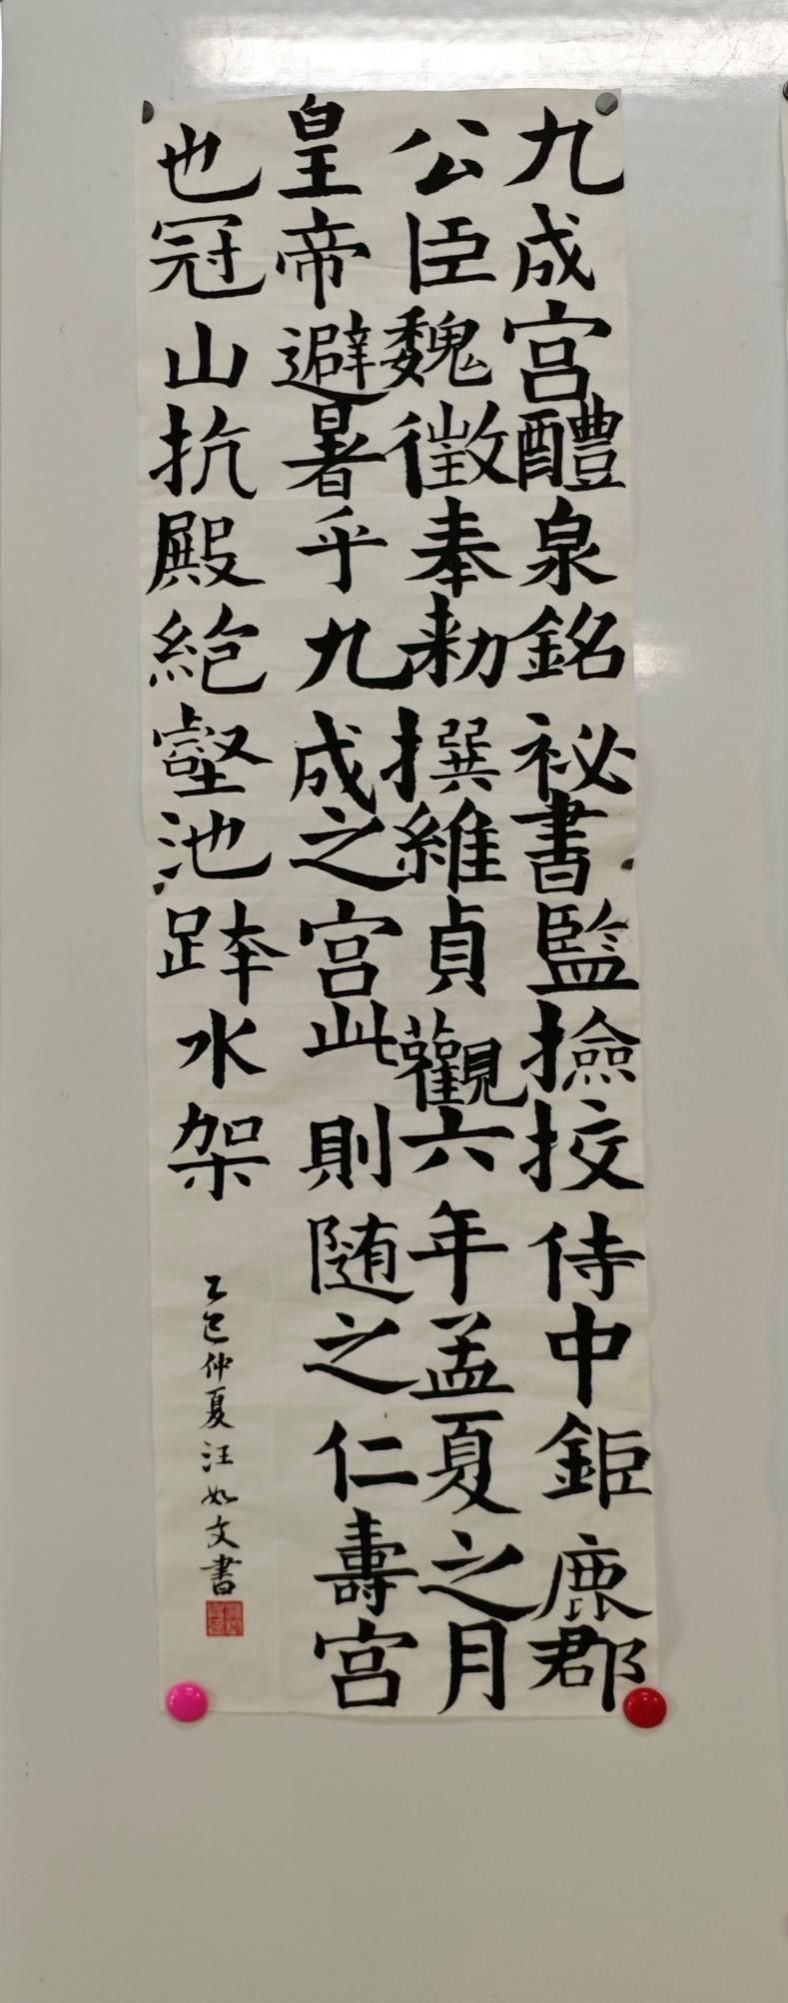 九成宫醴泉銘祕書監撿挍侍中鉅鹿郡
公臣魏徵奉勑撰維貞觀六年孟夏之月
皇帝避暑乎九成之宫此則随之仁壽宫
也冠山抗殿絶壑池跨水架
乙巳仲夏汪如文書